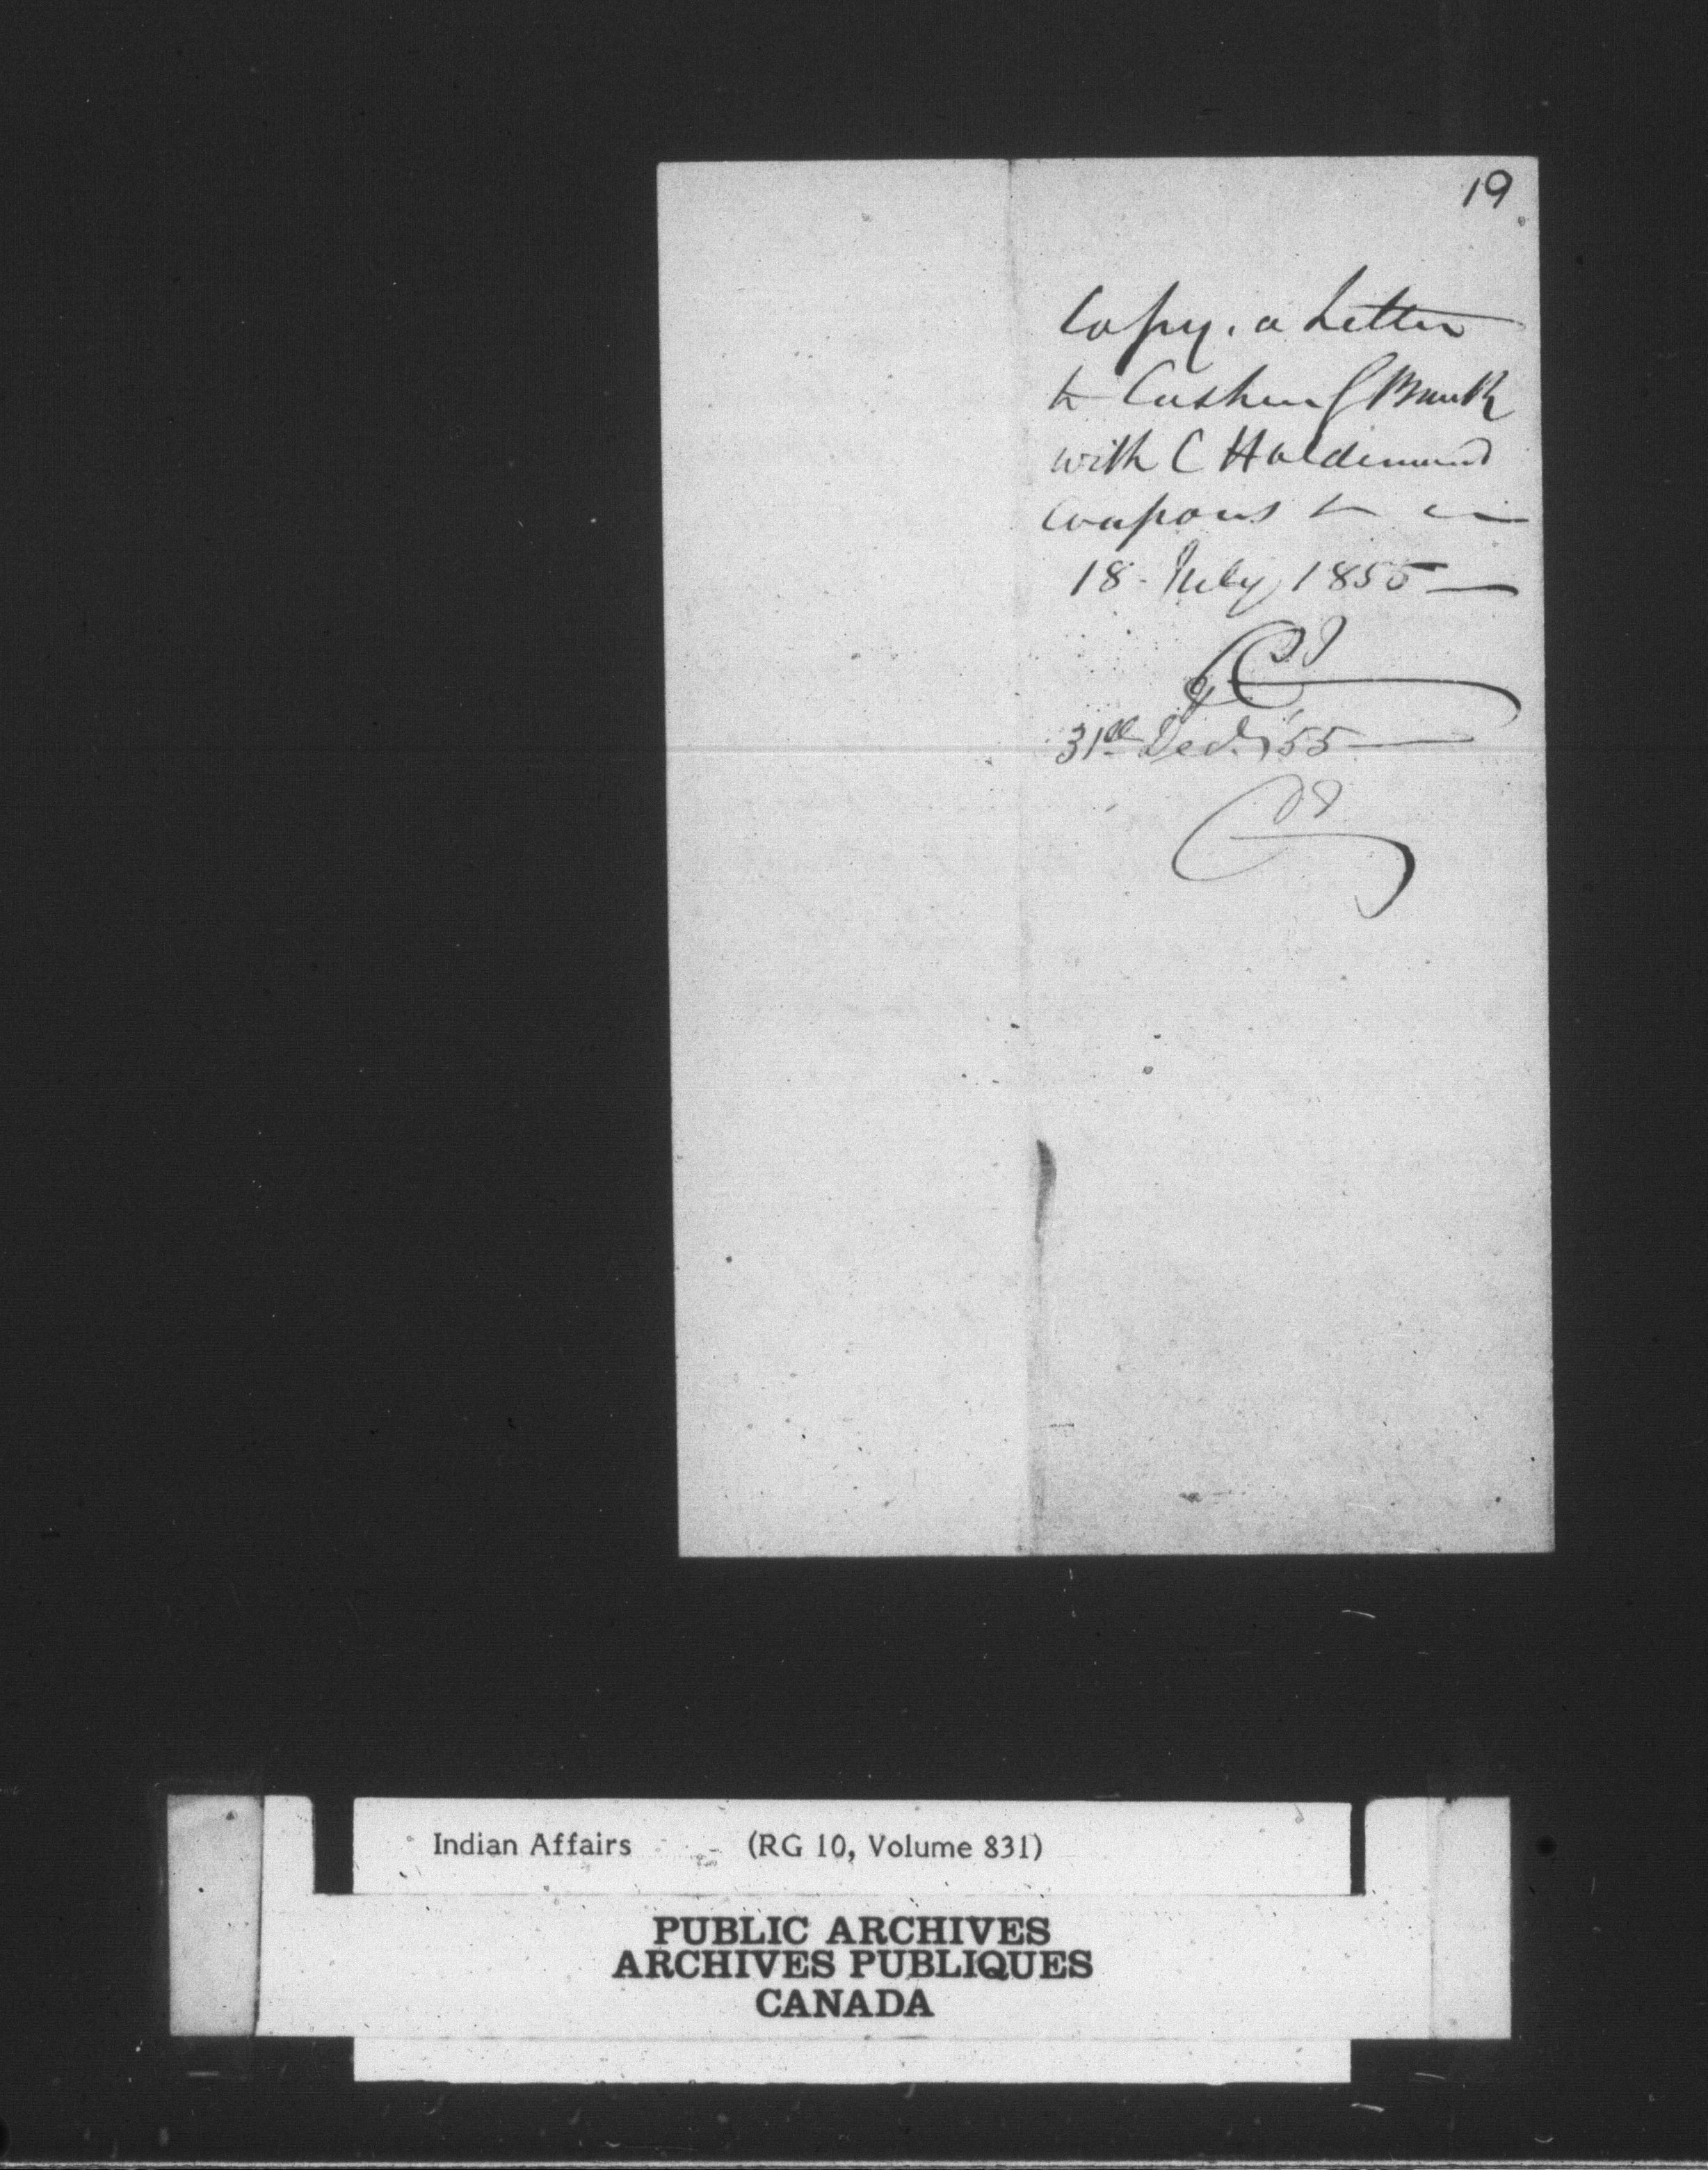 19
Copy. a Letter
to Cashier Bank
with C Haldimand
Coupons to
18 July 1855
31st Dec. '55
Indian Affairs (RG 10, Volume 831)
PUBLIC ARCHIVES
ARCHIVES PUBLIQUES
CANADA